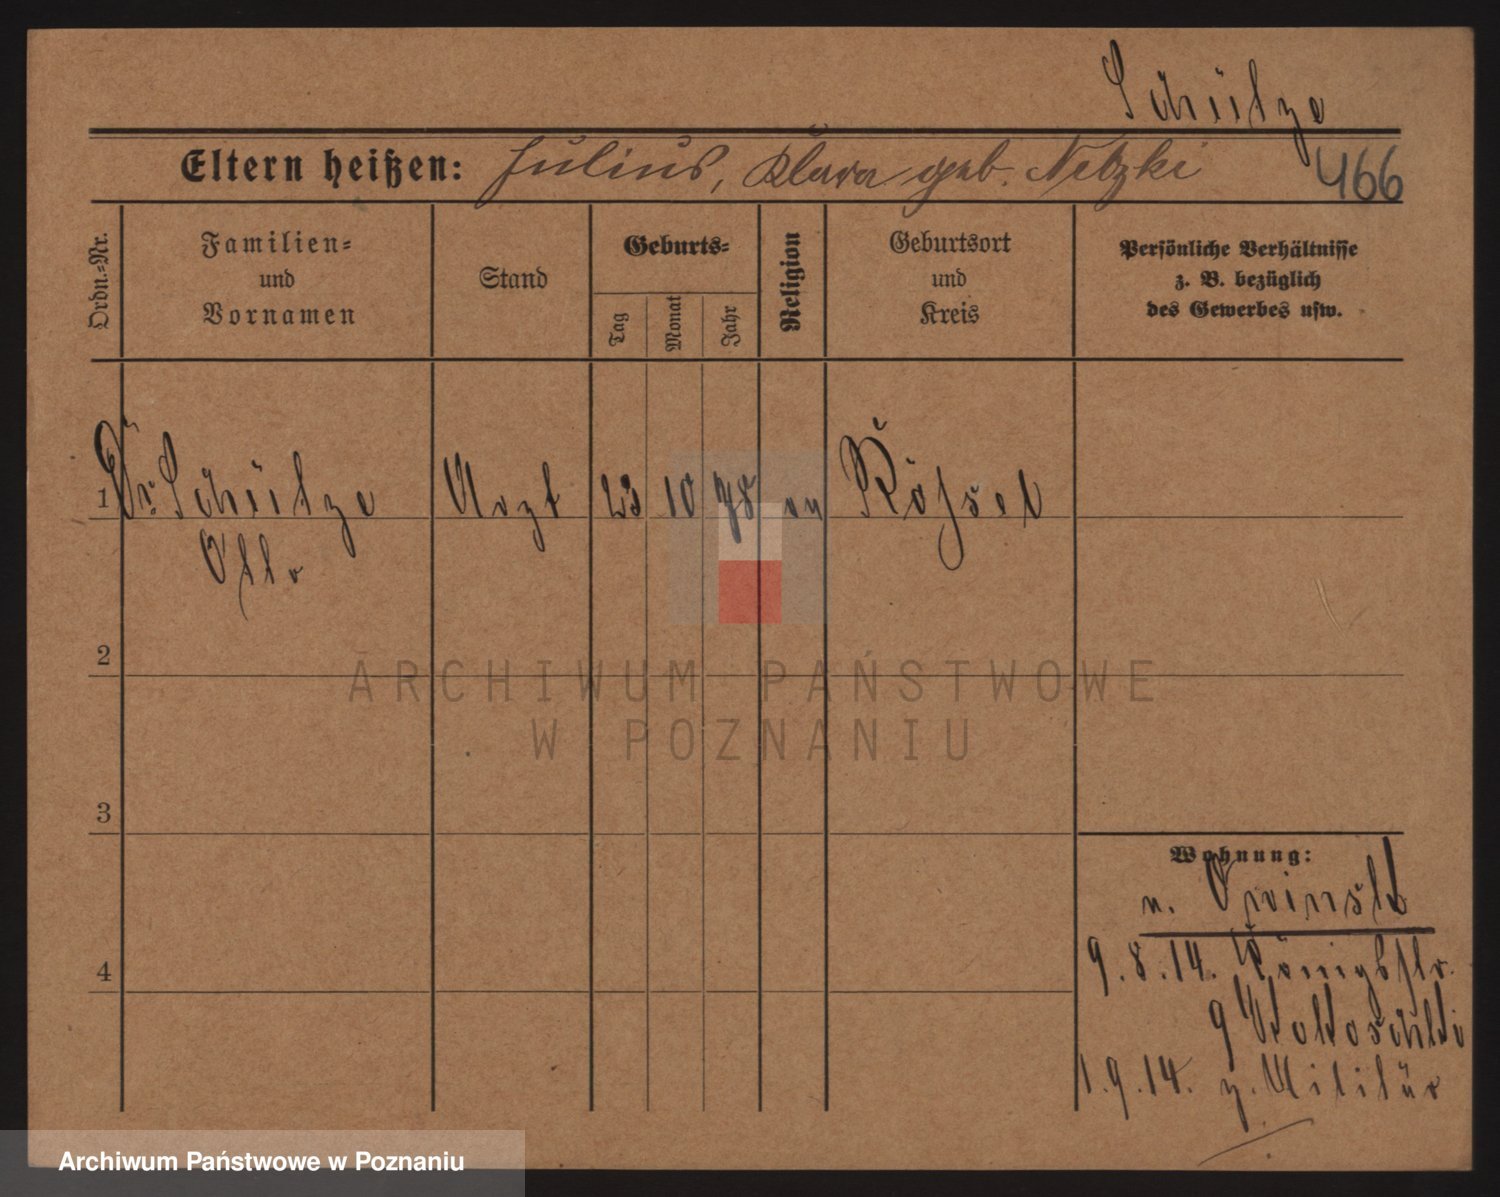 Schütze
Eltern heißen: Julius, Klara geb. Netzki 466
Ordn.-Nr.
Familien-
und
Vornamen
Stand
Geburts-
Tag
Monat
Jahr
Religion
Geburtsort
und
Kreis
Persönliche Verhältnisse
z. B. bezüglich
des Gewerbes usw.
1 Dr. Schütze Arzt 23 10 78 ev Rößel
Otto
2
ARCHIWUM PAŃSTWOWE
W POZNANIU
3
Wohnung:
n. Owinsk
9.8.14. Königstr.
9
4
1.9.14. z. Militär
Archiwum Państwowe w Poznaniu